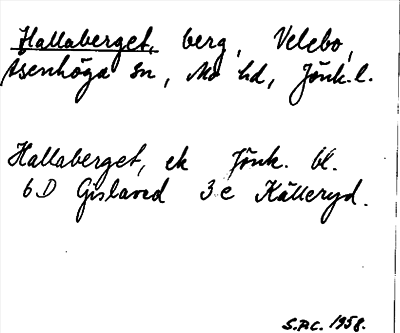 Hallaberget, berg, Velebo,
Åsenhöga sn, Mo hd, Jönk. l.
Hallaberget, ek Jönk. bl.
6 D Gislaved 3 c Källeryd.
S.P.C. 1958.